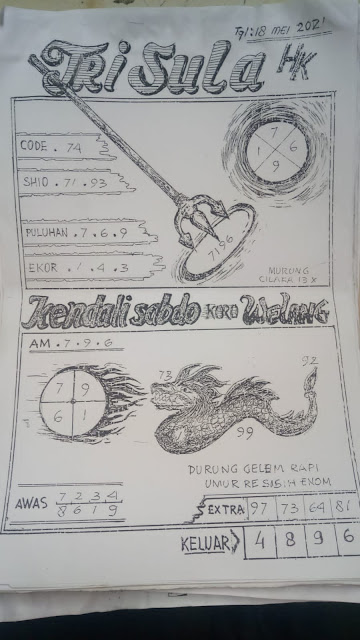 Tgl: 18 MEI 2021
Tri Sula HK
CODE . 74
SHIO . 71 . 93
PULUHAN . 7 . 6 . 9
EKOR . 1 . 4 . 3
7
1 6
9
7196
MURUNG
CILAKA 13 X
Kendali sabdo KORO WELANG
AM . 7 . 9 . 6
7 9
6 1
73
92
99
DURUNG GELEM RAPI
UMUR RE SISIH ENOM
AWAS 7 2 3 4
8 6 1 9
EXTRA 97 73 64 81
KELUAR 4 8 9 6